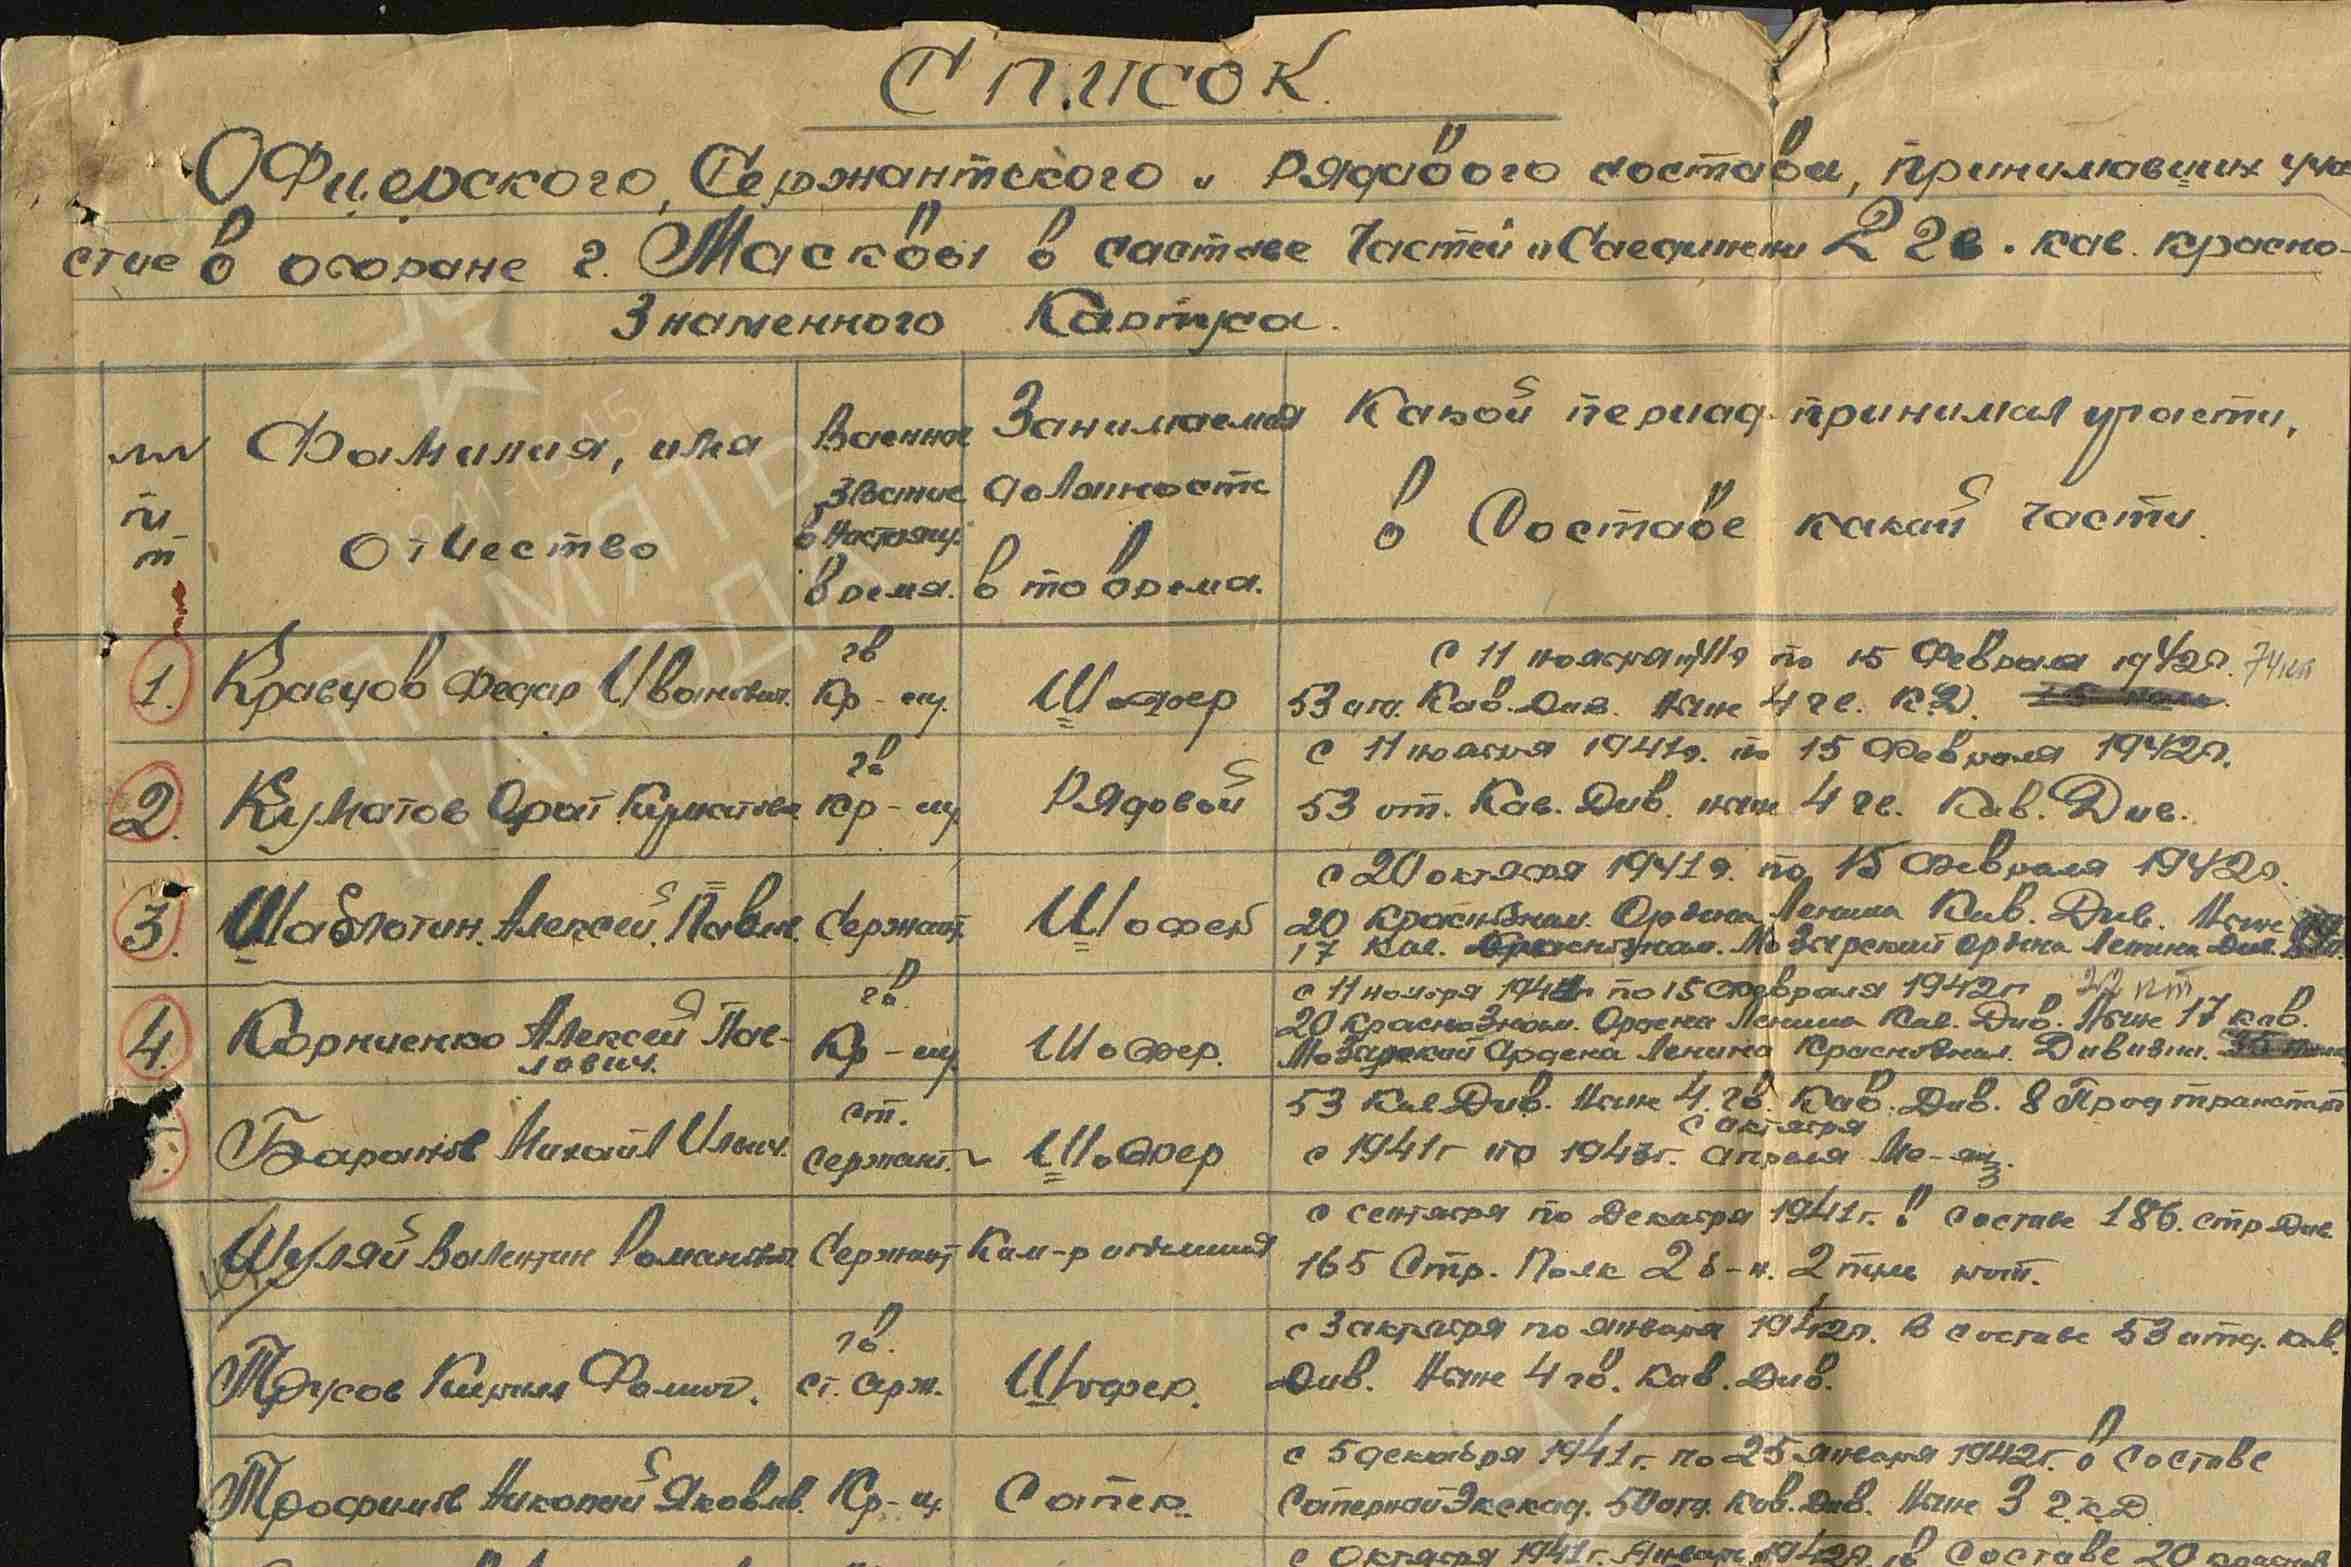 Список.
Офицерского, Сержантского и Рядового состава, принимавших уча
стие в охране г. Масквы в саставе Частей и Саединени 2 гв. кав. красно-
Знаменного Карпуса.
Фамилия, имя
Отчество
Ваенное
Звание
в Настоящ.
время.
Занимаемая
должность
в то время.
Какой периад принимал участи,
в Составе какай части.
1. Кравцов Федар Иванович. гв Кр-ец. Шофер с 11 ноября 1941г по 15 Февраля 1942г.
53 отд. Кав. Див. Ныне 4 гв. К.Д.
2. Куматов Кр-ец гв Рядовой с 11 ноября 1941г. по 15 Февраля 1942г.
53 от. Кав. Див. ныне 4 гв. Кав. Див.
3. Шаблотин. Алексей. Павл. Сержант. Шофер с 20 октября 1941г. по 15 Февраля 1942г.
20 Краснознам. Ордена Ленина Кав. Див. Ныне
17 Кав. Мозырский ордена Ленина Див.
4. Корниенко Алексей Пав-
лович. гв. Кр-ец Шофер. с 11 ноября 1941г по 15 февраля 1942г
20 Краснознам. Ордена Ленина Кав. Див. Ныне 17 кав.
Мозырский Ордена Ленина Краснознам. Дивизии.
Баранов Михаил Ильич. ст. Сержант. Шофер 53 Кав Див. Ныне 4 гв. Кав. Див. 8 Прод транспорт
с октября
с 1941г по 1943г. апреля Ме-яц.
Шуляй Валентин Романович Сержант Ком-р отделения с сентября по Декабря 1941г. в составе 186. стр Див.
165 Стр. Полк 2 б-н. 2 рот.
Трусов Кирилл Фомич. гв. ст. серж. Шофер. с 3 октября по января 1942г. в составе 53 отд. кав.
Див. Ныне 4 гв. Кав. Див.
Трофимов Николай Яковлев. Кр-ц Сапер. с 5 декабря 1941г. по 25 января 1942г. в составе
Саперной Эскад. 50 отд. Кав. Див. Ныне 3 г.К.Д.
с Октября 1941г. Январь 1942г. в Составе 20
ПАМЯТЬ
НАРОДА
1941-1945